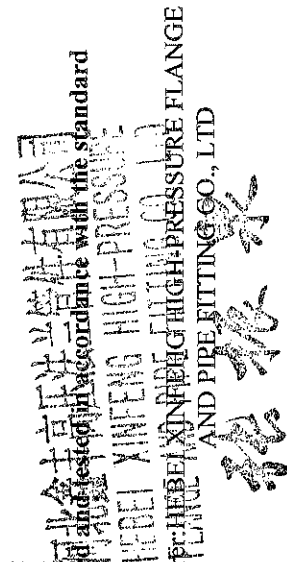 d and tested in accordance with the standard
河北鑫丰高压法兰管件有限公司
HEBEI XINFENG HIGH-PRESSURE
FLANGE AND PIPE FITTING CO., LTD
er:HEBEI XINFENG HIGH-PRESSURE FLANGE
AND PIPE FITTING CO., LTD